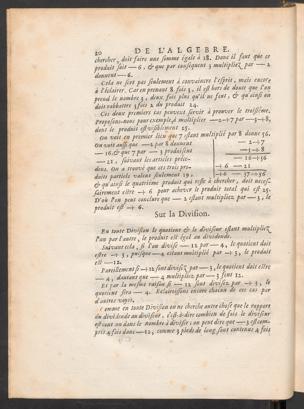 20 DE L'ALGEBRE.
chercher, doit faire une somme égale à 18. Donc il faut que ce
produit soit — 6, & que par conséquent 3 multipliez par — 2
donnent — 6.
Cela ne sert pas seulement à convaincre l'esprit, mais encore
à l'éclairer. Car en prenant 8 fois 3, il est hors de doute que l'on
prend le nombre 3, deux fois plus qu'il ne faut, & qu'ainsi on
doit rabbattre 3 fois 2 du produit 24.
Ces deux premiers cas peuvent servir à prouver le troisiéme.
Proposons-nous pour exemple à multiplier —2+7 par —3+8,
dont le produit est visiblement 25.
On voit en premier lieu que 7 estant multiplié par 8 donne 56.
On voit aussi que —2 par 8 donnent
—16, & que 7 par — 3 produisent
—21, suivant les articles précé-
dens. On a trouvé que ces trois pro-
duits partiels valent seulement 19,
— 2+7
— 3+8
— 16+56
+6 — 21
+6 — 37+56
& qu'ainsi le quatriéme produit qui reste à chercher, doit neces-
sairement estre + 6 pour achever le produit total qui est 25.
D'où l'on peut conclure que — 2 estant multipliez par — 3, le
produit est + 6.
Sur la Division.
En toute Division le quotient & le diviseur estant multipliez
l'un par l'autre, le produit est égal au dividende.
Suivant cela, si l'on divise — 12 par — 4, le quotient doit
estre + 3, puisque — 4 estant multiplié par + 3, le produit
est — 12.
Pareillement si — 12 sont divisez par — 3, le quotient doit estre
4, d'autant que — 4 multipliez par — 3 font 12.
Et par la mesme raison si — 12 sont divisez par + 3, le
quotient sera — 4. Eclaircissons encore chacun de ces cas par
d'autres voyes.
comme en toute Division on ne cherche autre chose que le rapport
du dividende au diviseur, c'est-à-dire combien de fois le diviseur
est contenu dans le nombre à diviser; on peut dire que — 3 est com-
pris 4 fois dans — 12, comme 3 pieds de long sont contenus 4 fois